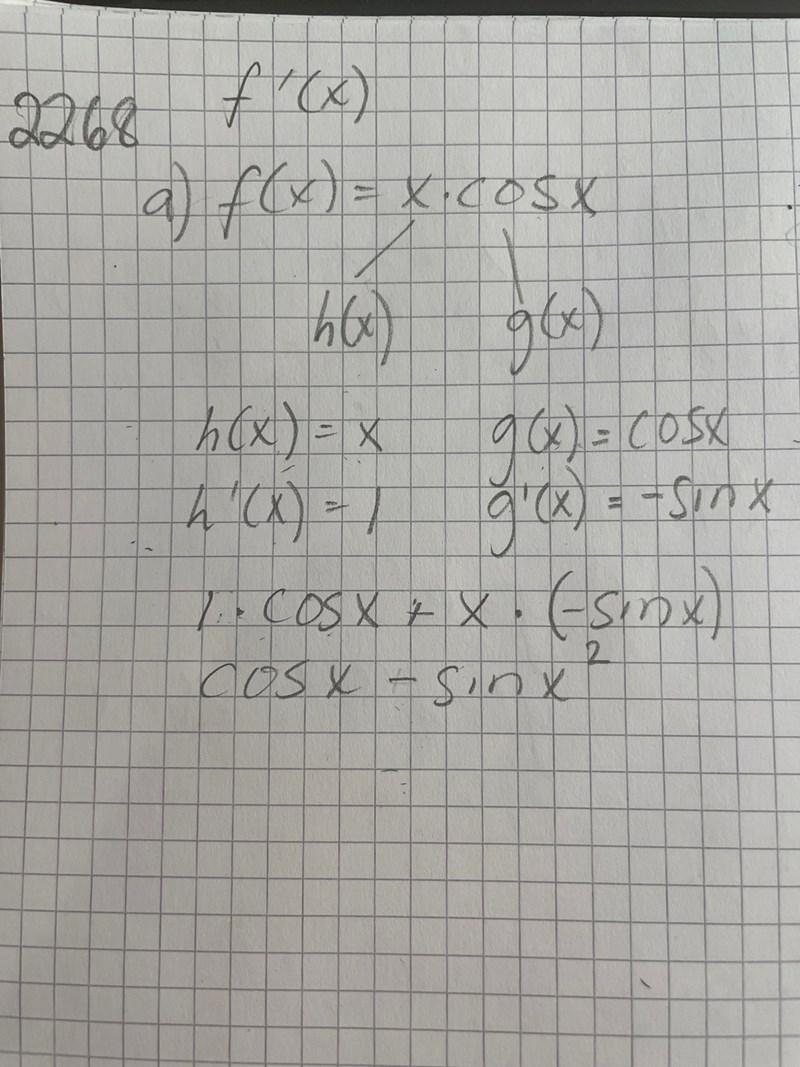 2268 f'(x)
a) f(x) = x · cosx
h(x) g(x)
h(x) = x g(x) = cosx
h'(x) = 1 g'(x) = -sinx
1 · cosx + x · (-sinx)
cosx - sinx²